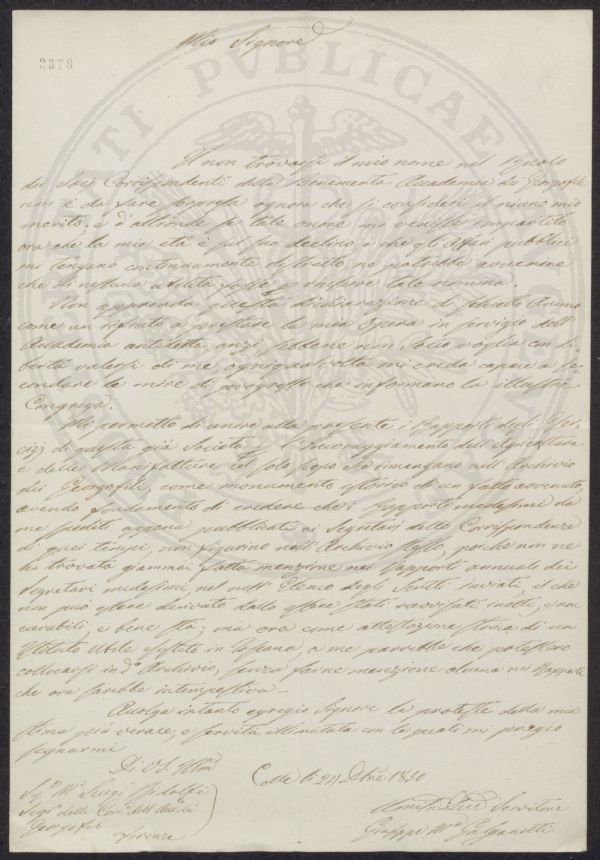 Mio Signore
2378
Il non trovarsi il mio nome nel Ruolo
dei Socj Corrispondenti della Benemerita Accademia dei Georgofili
non è da fare sorpresa ognora che si consideri il niuno mio
merito, e d'altronde se tale onore mi venisse impartito
ora che la mia età è sul suo declino, e che gli Affari pubblici
mi tengano continuamente distratto, ne potrebbe avvenire
che di nessuna utilità fosse per riuscire tale nomina.
Non apprenda questa dichiarazione di schietto Animo
come un rifiuto a prestare la mia Opera in servigio dell'
Accademia antidetta, anzi sebbene non Socio voglia con li-
bertà valersi di me, ogniqualvolta mi creda capace a se-
condare le mire di progresso che informano la illustre
Congrega.
Mi permetto di unire alla presente i Rapporti degli Eser-
cizj di questa già Società per l'Incoraggiamento dell'Agricoltura
e delle Manifatture col solo scopo che rimangano nell'Archivio
dei Georgofili, come monumento istorico di un fatto avvenuto
avendo fondamento di credere che i Rapporti medesimi da
me spediti appena pubblicati ai Segretarj delle Corrispondenze
di quei tempi, non figurino nell'Archivio stesso, poiche non ne
ho trovata giammai fatta menzione nei Rapporti annuali dei
Segretari medesimi, nel nell'Elenco degli Scritti inviati, il che
non può essere derivato dallo essere stati ravvisati inetti, e non
curabili, e bene stà; ma ora come attestazione storica di un
Istituto Utile esistito in Toscana, a me parrebbe che potessero
collocarsi in do. Archivio, senza farne menzione alcuna ne Rapporti
che ora sarebbe intempestiva.
Accolga intanto egregio Signore le proteste della mia
stima più verace, e servitù illimitata con le quali mi pregio
segnarmi
Di VS. Illma
Colle li 24 1830
Sigr. Me. Luigi Ridolfi
Segr. delle Corr. dell'Accadia dei
Georgofili
Firenze
Servitore
Giuseppe Ma. Galganetti